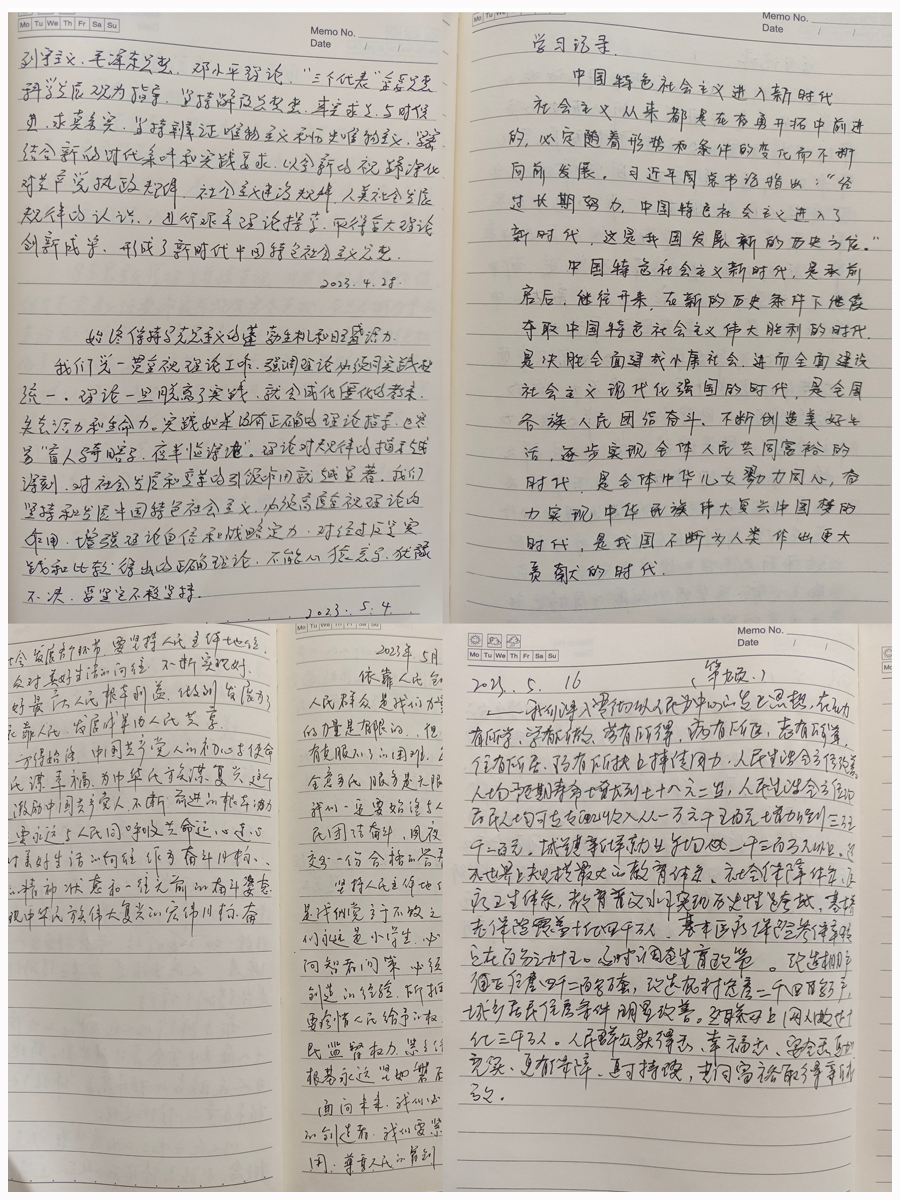 Mo Tu We Th Fr Sa Su
Memo No.
Date / /
列宁主义、毛泽东思想、邓小平理论、“三个代表”重要思想
科学发展观为指导，坚持解放思想、实事求是、与时俱
进、求真务实，坚持辩证唯物主义和历史唯物主义，紧密
结合新的时代条件和实践要求，以全新的视野深化
对共产党执政规律、社会主义建设规律、人类社会发展
规律的认识，进行艰辛理论探索，取得重大理论
创新成果，形成了新时代中国特色社会主义思想。
2023.4.28.
始终保持马克思主义的蓬勃生机和旺盛活力
我们党一贯重视理论工作，强调理论必须同实践相
统一。理论一旦脱离了实践，就会成化僵化的教条，
失去活力和生命力。实践如果没有正确的理论指导，也容
易“盲人骑瞎马，夜半临深池”。理论对规律的揭示越
深刻，对社会发展和变革的引领作用就越显著。我们
坚持和发展中国特色社会主义，必须高度重视理论的
作用，增强理论自信和战略定力，对经过反复实
践和比较得出的正确理论，不能心猿意马、犹豫
不决，要坚定不移坚持。
2023.5.4.
Mo Tu We Th Fr Sa Su
Memo No.
Date / /
学习记录
中国特色社会主义进入新时代
社会主义从来都是在有勇开拓中前进
的，必定随着形势和条件的变化而不断
向前发展。习近平同志书话指出：“经
过长期努力，中国特色社会主义进入了
新时代，这是我国发展新的历史方位。”
中国特色社会主义新时代，是承前
启后、继往开来、在新的历史条件下继续
夺取中国特色社会主义伟大胜利的时代，
是决胜全面建成小康社会、进而全面建设
社会主义现代化强国的时代，是全国
各族人民团结奋斗、不断创造美好生
活、逐步实现全体人民共同富裕的
时代，是全体中华儿女勠力同心、奋
力实现中华民族伟大复兴中国梦的
时代，是我国不断为人类作出更大
贡献的时代。
会发展新时代，要坚持人民主体地位，
众对美好生活的向往，不断实现好、
好最广大人民根本利益，做到发展为了
靠人民、发展成果由人民共享。
中国共产党人的初心与使命
民谋幸福，为中华民族谋复兴，这个
激励中国共产党人不断前进的根本动力
要永远与人民同呼吸共命运、心连心
对美好生活的向往作为奋斗目标，
的精神状态和一往无前的奋斗姿态
现中华民族伟大复兴的宏伟目标奋
2023年5月
依靠人民创
人民群众是我们力量
的力量是有限的，但
有克服不了的困难，
全意为人民服务是无限
我们一定要始终与人
民团结奋斗，夙夜
交一份合格的答卷
坚持人民主体地位
是我们党立于不败之
们永远是小学生，必
问智于民问策，必须
创造的经验，所拥
要珍惜人民给予的权
民监督权力，紧紧依
根基永远坚如磐石
面向未来，我们必
的创造者，我们要紧
困，尊重人民的首创
Memo No.
Mo Tu We Th Fr Sa Su
Date / /
2023.5.16
（第5页）
一我们深入贯彻以人民为中心的发展思想，在幼
有所育、学有所教、劳有所得、病有所医、老有所养、
住有所居、弱有所扶上持续用力，人民生活全方位改善。
人均预期寿命增长到七十八点二岁，人民生活全方位
居民人均可支配收入从一万六千五百元增加到三万五
千一百元。城镇新增就业年均一千三百万人以上。建
成世界上规模最大的教育体系、社会保障体系、医
疗卫生体系，教育普及水平实现历史性跨越，基本养
老保险覆盖十亿四千万人，基本医疗保险参保率稳
定在百分之九十五。及时调整生育政策。改造棚户
区住房四千二百多万套，改造农村危房二千四百多万户，
城乡居民住房条件明显改善。互联网上网人数达十
亿三千万人。人民群众获得感、幸福感、安全感更加
充实、更有保障、更可持续，共同富裕取得新成
效。